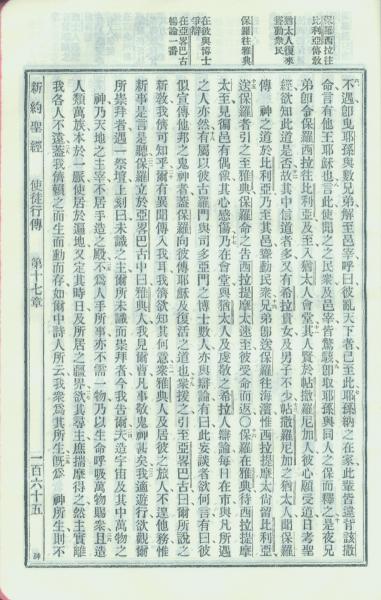 保羅西拉往
比利亞傳敎
猶太人復來
聳動衆民
保羅往雅典
在彼與博士
爭辯
在亞畧巴古
暢論一番
不遇卽曳耶孫與數兄弟解至邑宰呼曰彼亂天下者已至此耶孫納之在家此輩皆違背該撒
命言有他王耶穌也言此使聞之之民衆及邑宰皆驚駭卽取耶孫與同人之保而釋之是夜兄
弟卽令保羅西拉往比利亞及至入猶太人會堂其人賢於帖撒羅尼加人彼心願受道日考聖
經欲知此道是否故其中信道者多又有希拉貴女及男子不少帖撒羅尼加之猶太人聞保羅
傳 神之道於比利亞乃至其邑聳動民衆兄弟卽送保羅往海濱惟西拉提摩太尙留比利亞
送保羅者引之至雅典保羅命之告西拉提摩太速至彼受命而返○保羅在雅典待西拉提摩
太至見闔邑有偶像其心感傷乃在會堂與猶太人及虔敬之希拉人辯論每日在市與凡所遇
之人亦然有屬以彼古羅門與司多亞門之博士數人亦與辯論有曰此妄談者欲何言有曰彼
似宣傳他邦之鬼神者蓋保羅向彼傳耶穌及復活之道也衆援之引至亞畧巴古曰爾所說之
新敎我儕可得知乎爾有異聞傳入我耳我儕欲知其何意衆雅典人及居彼之旅人不遑他務惟
新事是言是聽保羅立於亞畧巴古中曰雅典人、我見爾曹凡事敬鬼神甚矣我適遊行欲觀爾
所崇拜者遇一祭壇上刻曰未識之主爾所未識而崇拜者今我告爾夫造宇宙及其中萬物之
神乃天地之主宰不居手造之殿不爲人手所事亦不需一物乃以生命呼吸萬物賜衆且造
人類萬族本於一脈使居於遍地又定其時日及所居之疆界欲其尋主庶揣摩得之然主實離
我各人不遠蓋我儕賴之而生而動而存如爾中詩人所云我衆爲其所生旣爲 神所生則不
新約聖經 使徒行傳 第十七章 一百六十五